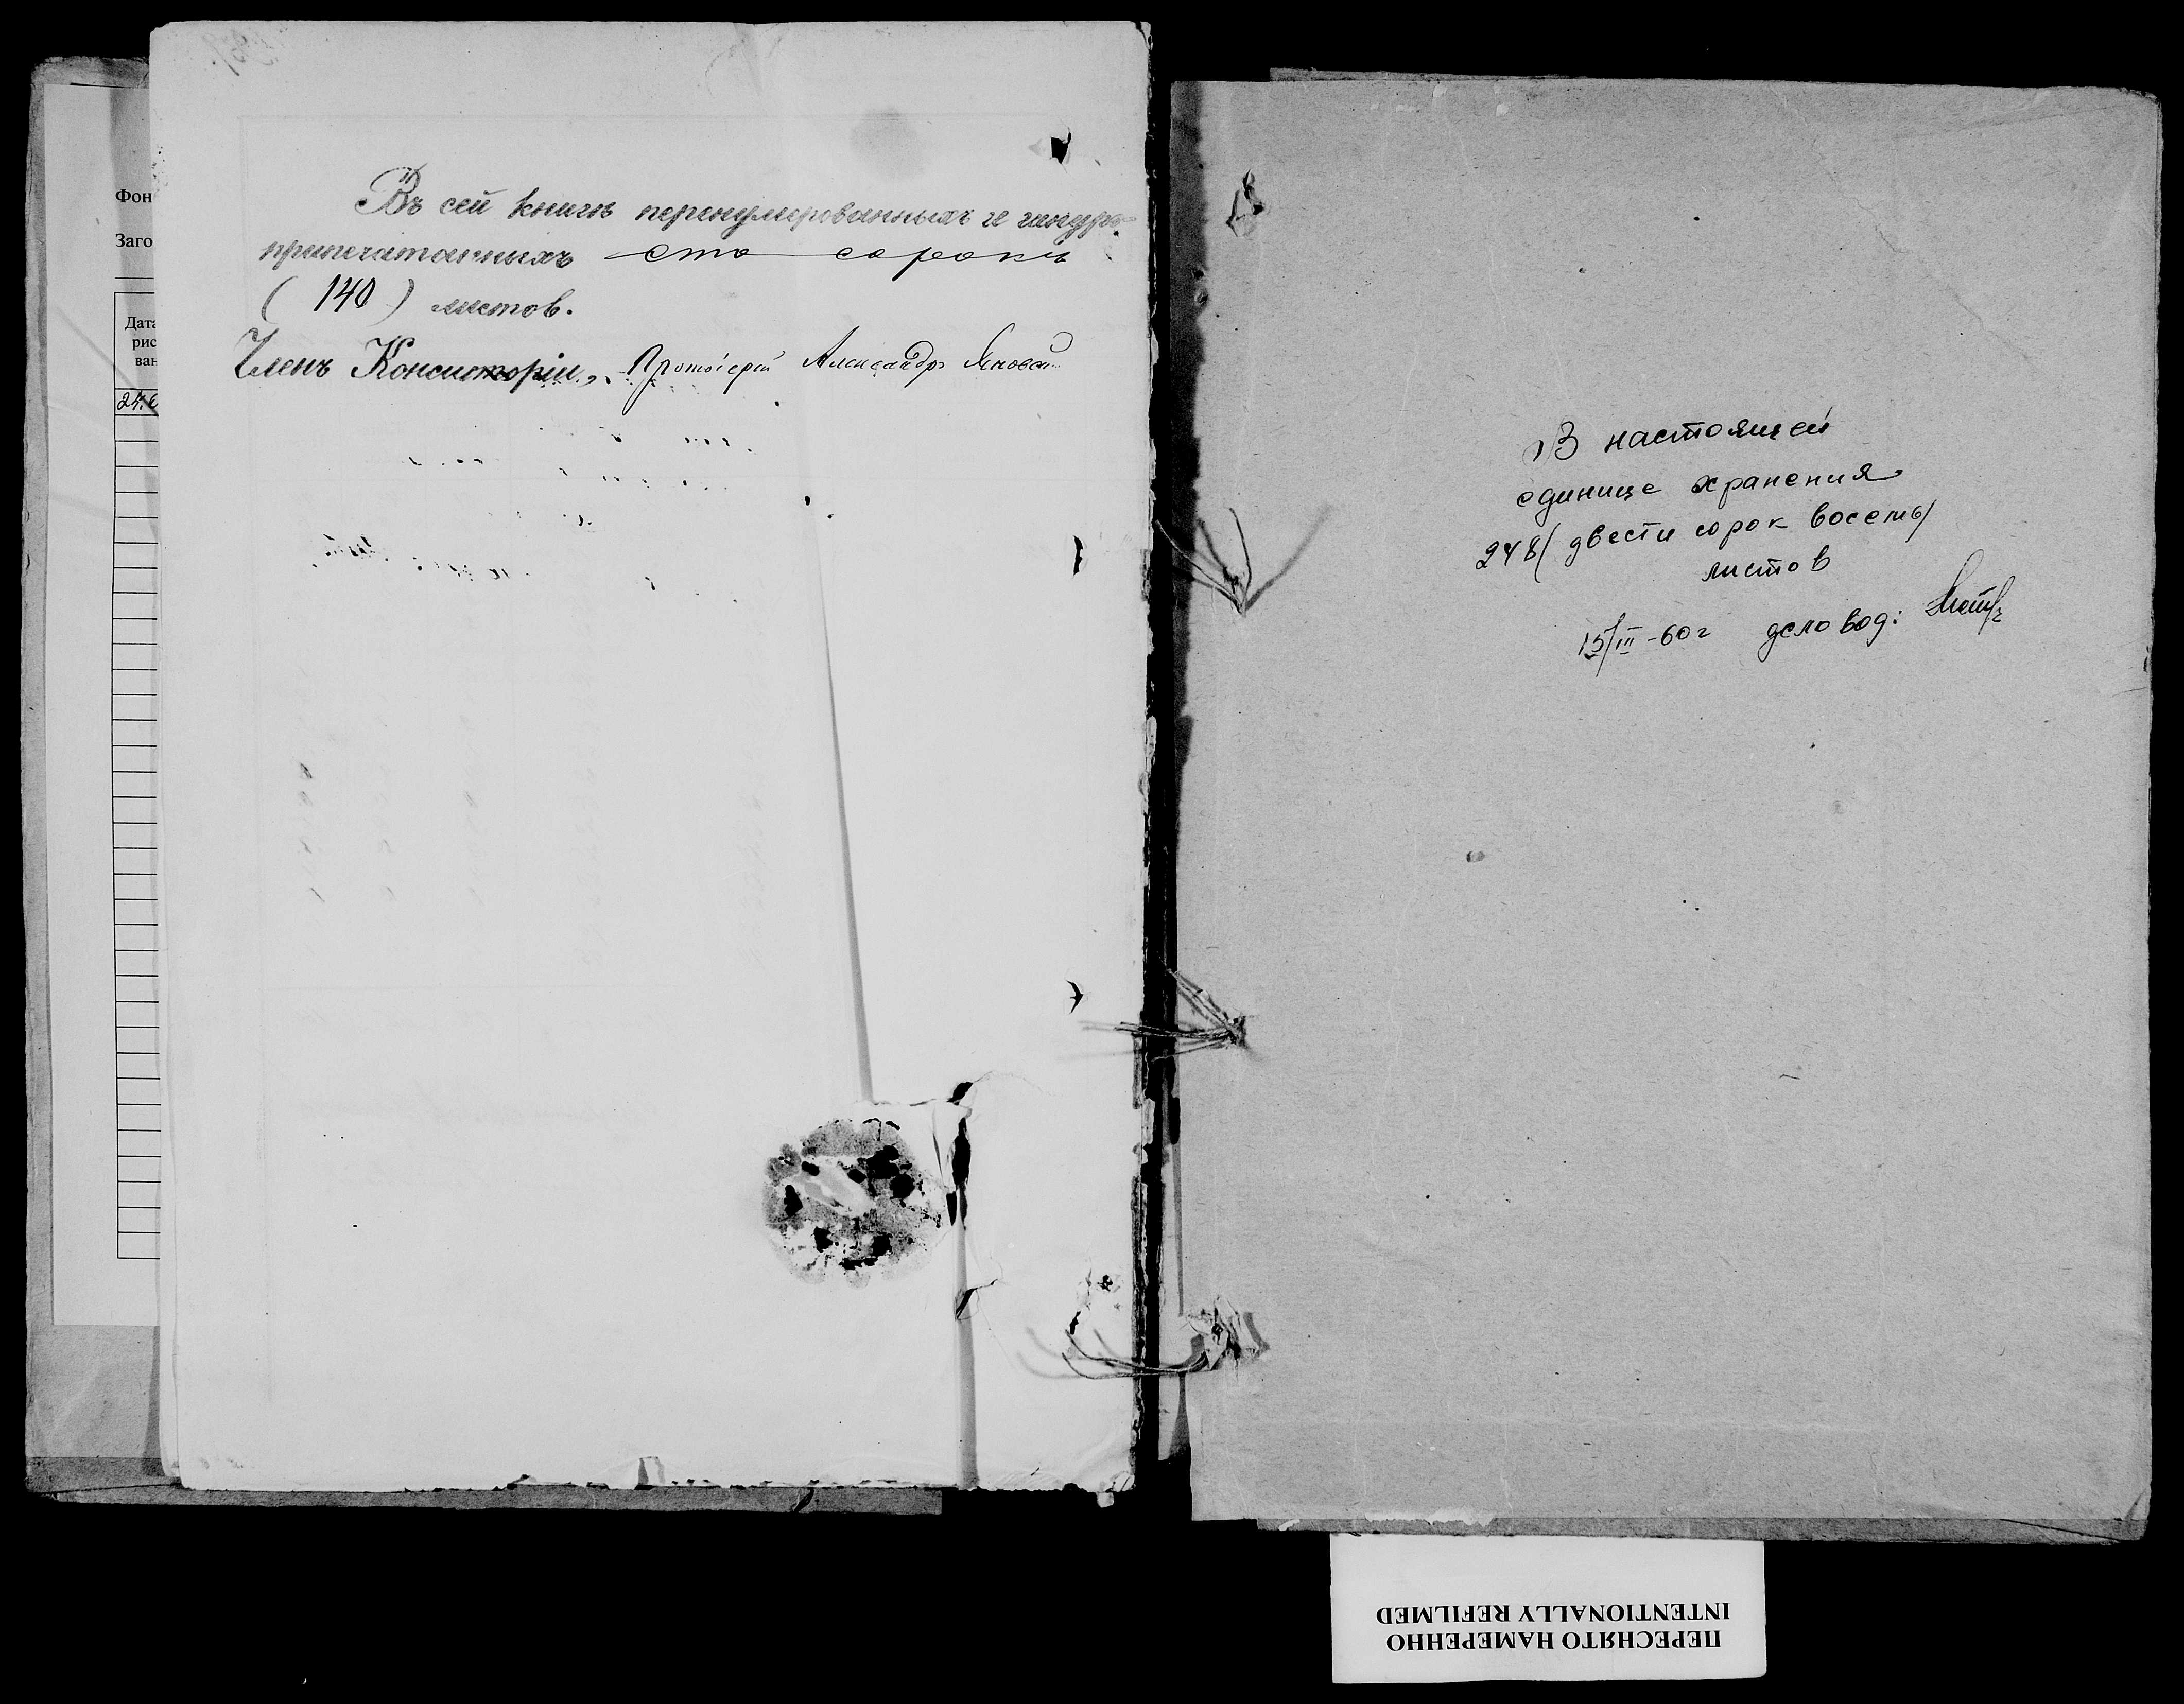 Фон
Заго
Дата
рис
ван
24.
Въ сей книгѣ перенумерованныхъ и шнуро-
припечатанныхъ сто сорокъ
( 140 ) листов.
Членъ Консисторіи, Протоіерей Александръ
В настоящей
единице хранения
248 (двести сорок восемь)
листов
15/III-60г деловод:
ПЕРЕСНЯТО НАМЕРЕННО
INTENTIONALLY REFILMED